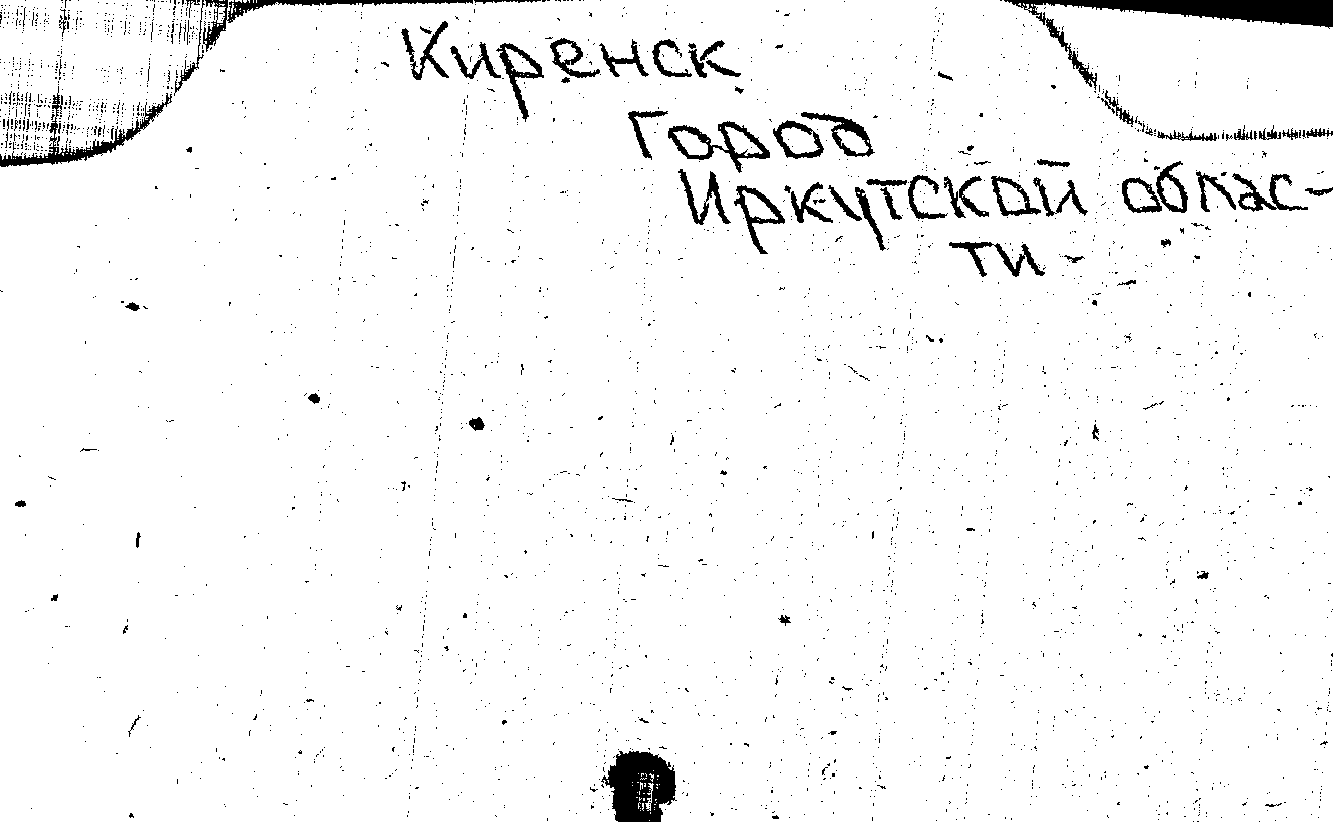 Киренск
Город
Иркутской облас-
ти -